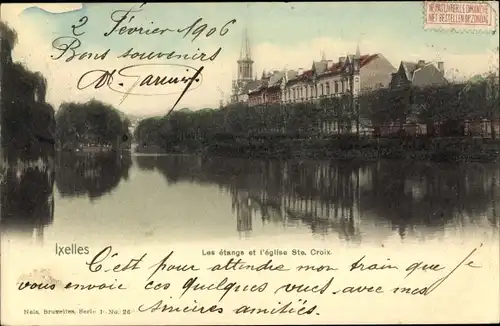 2 Février 1906
Bons souvenirs
NE PAS LIVRER LE DIMANCHE
NIET BESTELLEN OP ZONDAG
Ixelles
Les étangs et l'église Ste. Croix.
C'est pour attendre mon train que je
vous envoie ces quelques vues, avec mes
sincères amitiés.
Nels, Bruxelles, Serie 1 No. 26